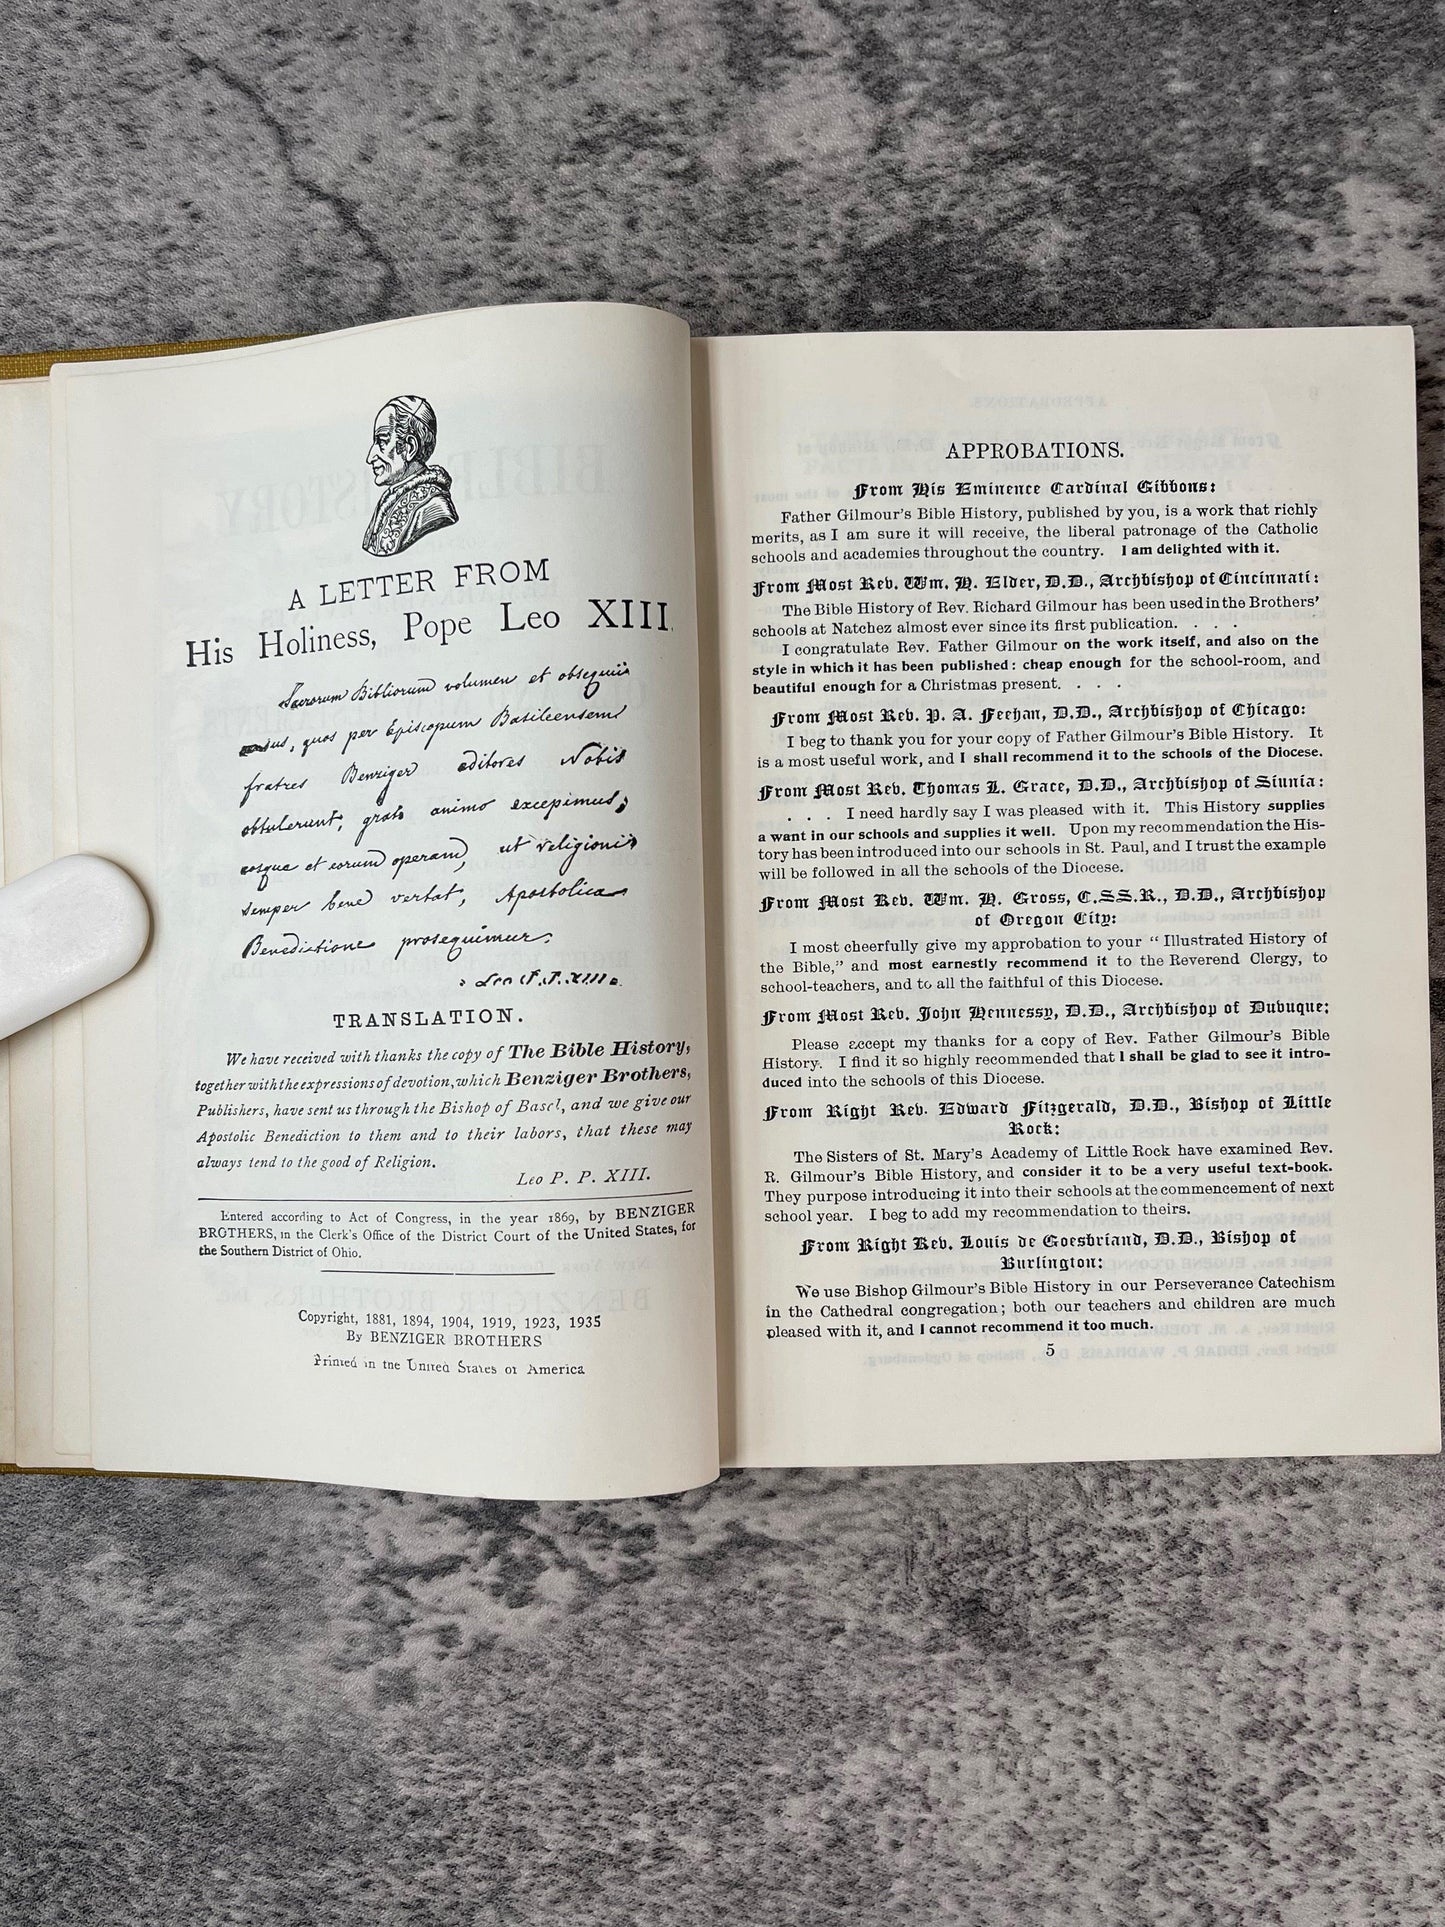 A LETTER FROM
His Holiness, Pope Leo XIII.
Sacrorum Bibliorum volumen et obsequii
sensus, quos per Episcopum Basileensem
fratres Benziger editores Nobis
obtulerunt, grato animo excepimus,
eosque et eorum operam, ut religioni
semper bene vertat, Apostolica
Benedictione prosequimur.
Leo P. P. XIII.
TRANSLATION.
We have received with thanks the copy of The Bible History,
together with the expressions of devotion, which Benziger Brothers,
Publishers, have sent us through the Bishop of Basel, and we give our
Apostolic Benediction to them and to their labors, that these may
always tend to the good of Religion.
Leo P. P. XIII.
Entered according to Act of Congress, in the year 1869, by BENZIGER
BROTHERS, in the Clerk's Office of the District Court of the United States, for
the Southern District of Ohio.
Copyright, 1881, 1894, 1904, 1919, 1923, 1935
By BENZIGER BROTHERS
Printed in the United States of America
APPROBATIONS.
From His Eminence Cardinal Gibbons:
Father Gilmour's Bible History, published by you, is a work that richly
merits, as I am sure it will receive, the liberal patronage of the Catholic
schools and academies throughout the country. I am delighted with it.
From Most Rev. Wm. H. Elder, D.D., Archbishop of Cincinnati:
The Bible History of Rev. Richard Gilmour has been used in the Brothers'
schools at Natchez almost ever since its first publication. . . .
I congratulate Rev. Father Gilmour on the work itself, and also on the
style in which it has been published: cheap enough for the school-room, and
beautiful enough for a Christmas present. . . .
From Most Rev. P. A. Feehan, D.D., Archbishop of Chicago:
I beg to thank you for your copy of Father Gilmour's Bible History. It
is a most useful work, and I shall recommend it to the schools of the Diocese.
From Most Rev. Thomas L. Grace, D.D., Archbishop of Siunia:
. . . I need hardly say I was pleased with it. This History supplies
a want in our schools and supplies it well. Upon my recommendation the His-
tory has been introduced into our schools in St. Paul, and I trust the example
will be followed in all the schools of the Diocese.
From Most Rev. Wm. H. Gross, C.SS.R., D.D., Archbishop
of Oregon City:
I most cheerfully give my approbation to your "Illustrated History of
the Bible," and most earnestly recommend it to the Reverend Clergy, to
school-teachers, and to all the faithful of this Diocese.
From Most Rev. John Hennessy, D.D., Archbishop of Dubuque:
Please accept my thanks for a copy of Rev. Father Gilmour's Bible
History. I find it so highly recommended that I shall be glad to see it intro-
duced into the schools of this Diocese.
From Right Rev. Edward Fitzgerald, D.D., Bishop of Little
Rock:
The Sisters of St. Mary's Academy of Little Rock have examined Rev.
R. Gilmour's Bible History, and consider it to be a very useful text-book.
They purpose introducing it into their schools at the commencement of next
school year. I beg to add my recommendation to theirs.
From Right Rev. Louis de Goesbriand, D.D., Bishop of
Burlington:
We use Bishop Gilmour's Bible History in our Perseverance Catechism
in the Cathedral congregation; both our teachers and children are much
pleased with it, and I cannot recommend it too much.
5